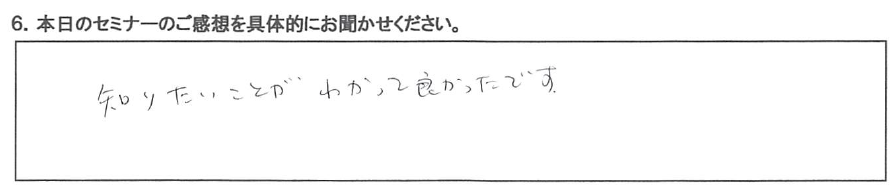 6. 本日のセミナーのご感想を具体的にお聞かせください。
知りたいことが わかって良かったです